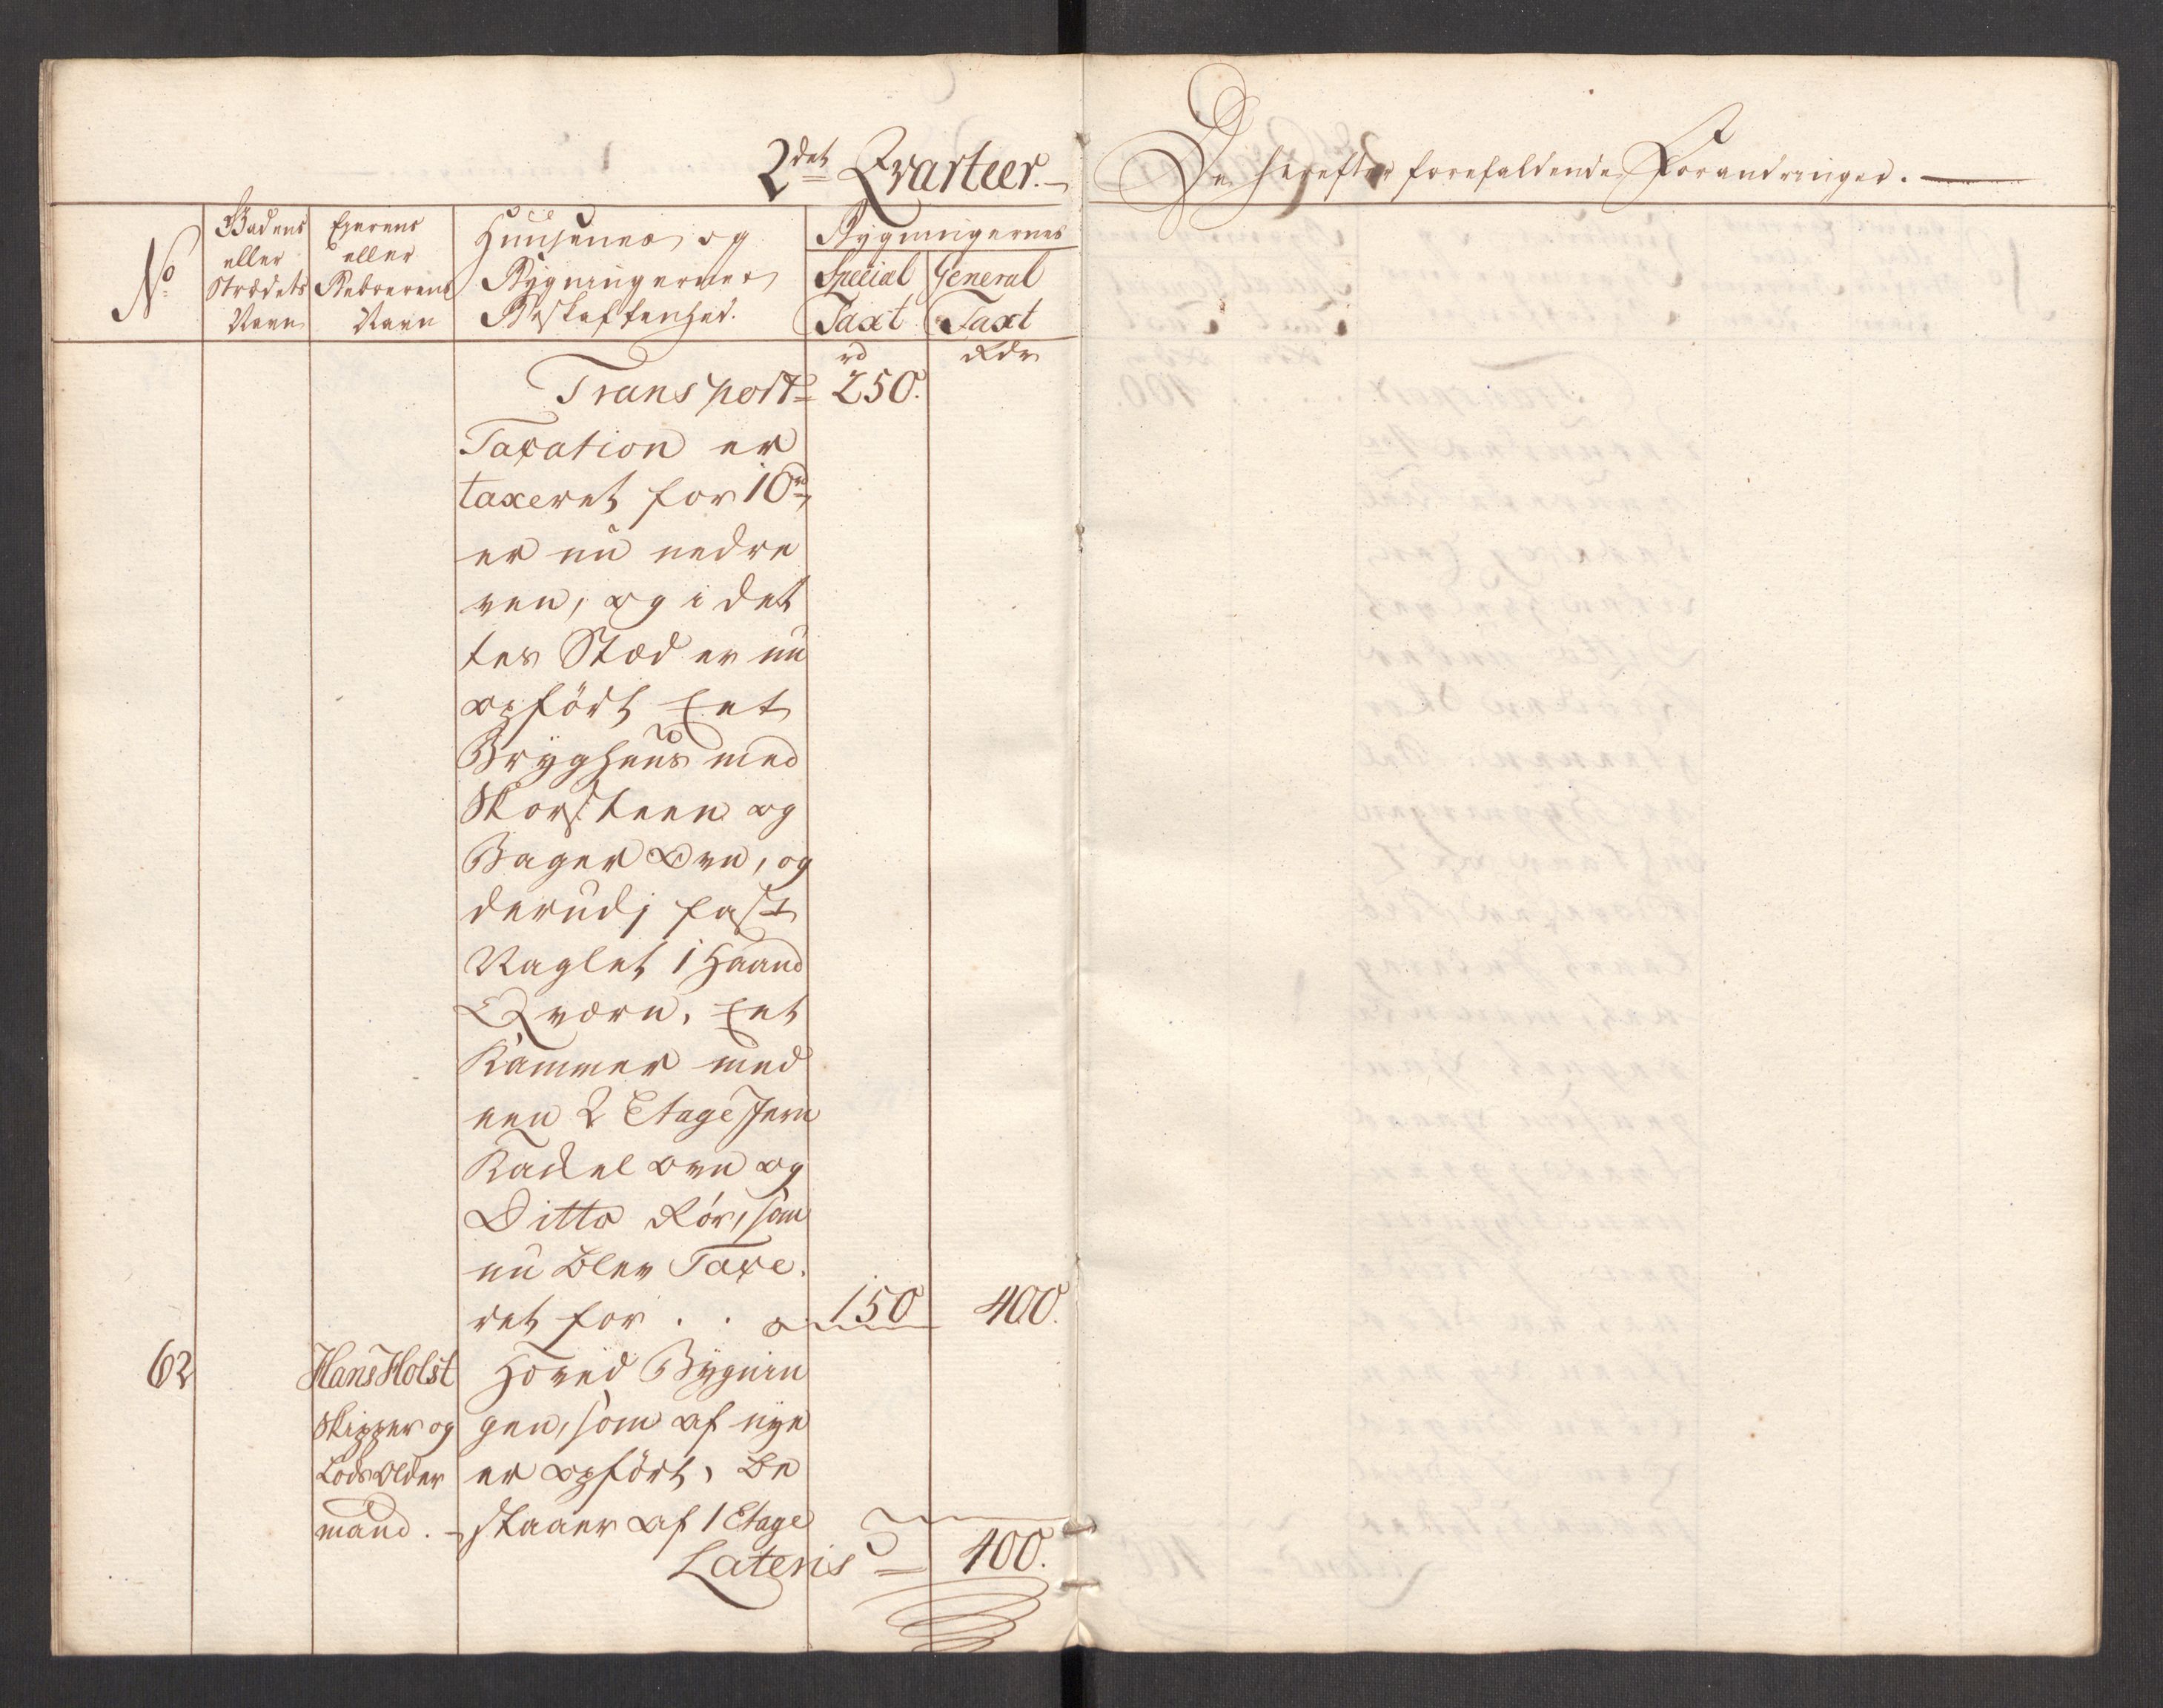 2det Qvarteer.
De herefter forefaldende Forandringer.
No
Gadens eller Strædets Navn
Ejerens eller Beboerens Navn
Huusenes og Bygningernes Beskaffenhed.
Bygningernes
Special Taxt
General Taxt
rd Rdr
Transport = 250.
Taxation er
taxeret for 10 rd,
er nu nedre
ven, og i det
tes Stæd er nu
opført Eet
Bryghuus med
Skorsteen og
Bager Ovn, og
derudj fast
Naglet 1 Haand
Qværn, Eet
Kammer med
een 2 Etage Jern
Kackelovn og
Ditto Rör, som
nu blev Taxe.
ret for . . 150 400.
62 Hans Holst Hoved Bygnin
Skipper og gen, som af nye
Lods Older er opfört, be
mand. - staaer af 1 Etage
Lateris = 400.